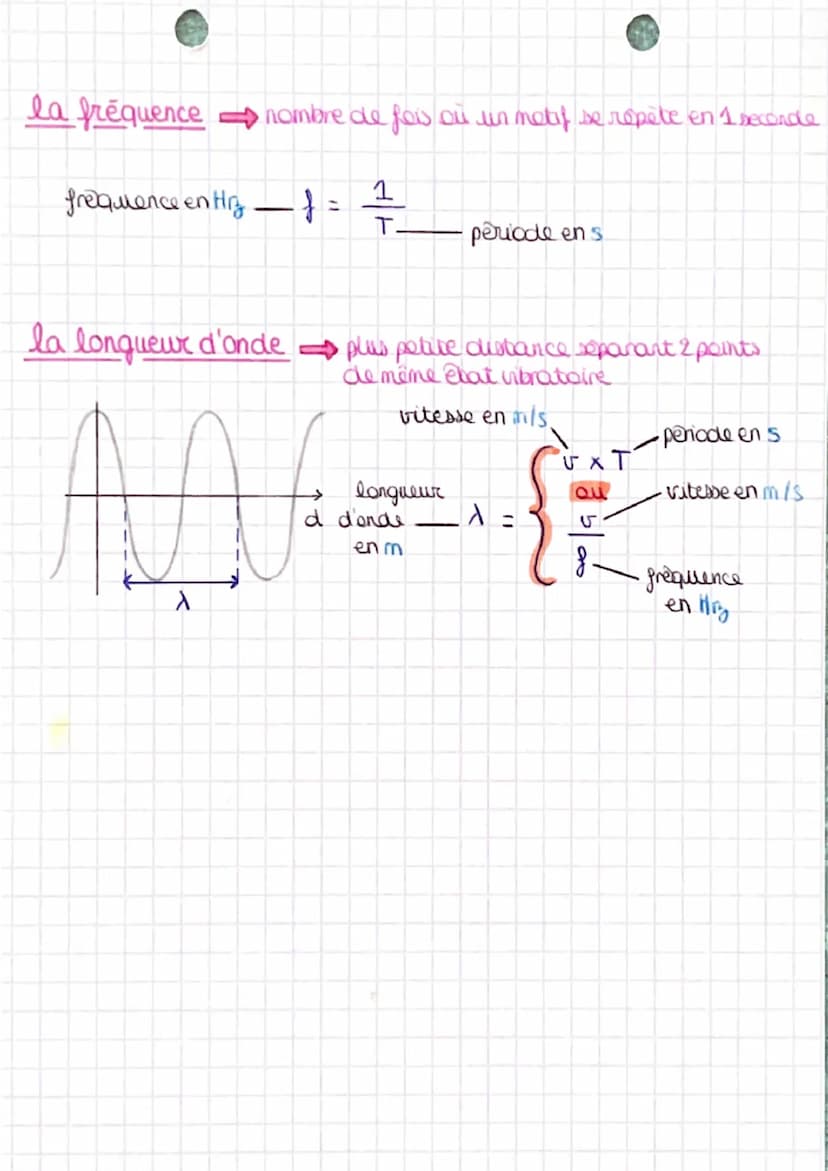 la fréquence ⇒ nombre de fois où un motif se répète en 1 seconde
fréquence en Hz — f = 1/T — période en s
la longueur d'onde ⇒ plus petite distance séparant 2 points
de même état vibratoire
vitesse en m/s
période en s
v × T
longueur
d'onde
en m
λ =
ou
vitesse en m/s
v/f
fréquence
en Hz
d
λ